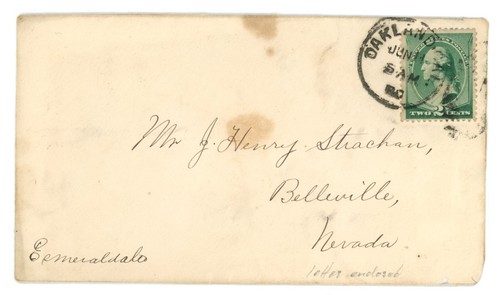 OAKLAND
JUN
5 AM
TWO 2 CENTS
Mr J. Henry Strachan,
Belleville,
Nevada.
Esmeralda Co
letter enclosed